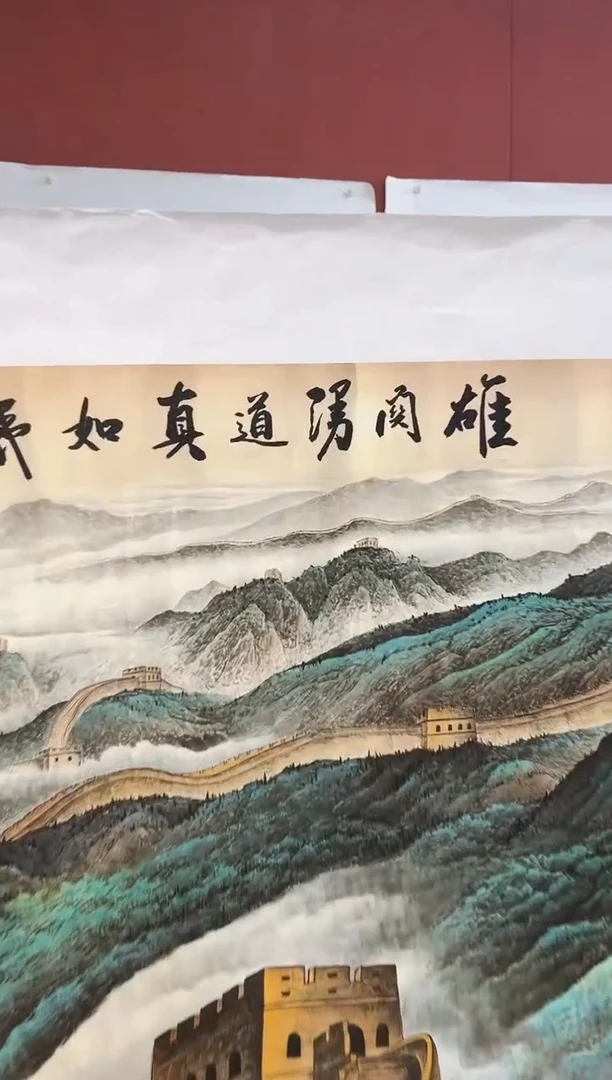 雄関漫道真如